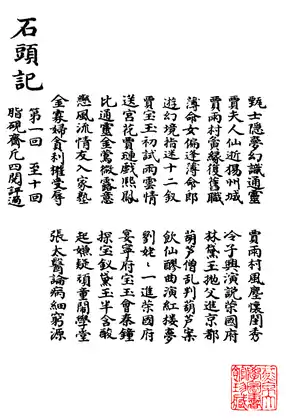 甄士隱夢幻識通靈　賈雨村風塵懷閨秀
賈夫人仙逝揚州城　冷子興演說榮國府
賈雨村夤緣復舊職　林黛玉拋父進京都
薄命女偏逢薄命郎　葫蘆僧亂判葫蘆案
遊幻境指迷十二釵　飲仙醪曲演紅樓夢
賈宝玉初試雨雲情　劉姥〻一進榮國府
送宮花賈璉戲熙鳳　宴寧府宝玉會秦鐘
比通靈金鶯微露意　探宝釵黛玉半含酸
戀風流情友入家塾　起嫌疑頑童鬧學堂
金寡婦貪利權受辱　張太醫論病細窮源
第一回　至十回
脂硯齋凡四閱評過
石頭記